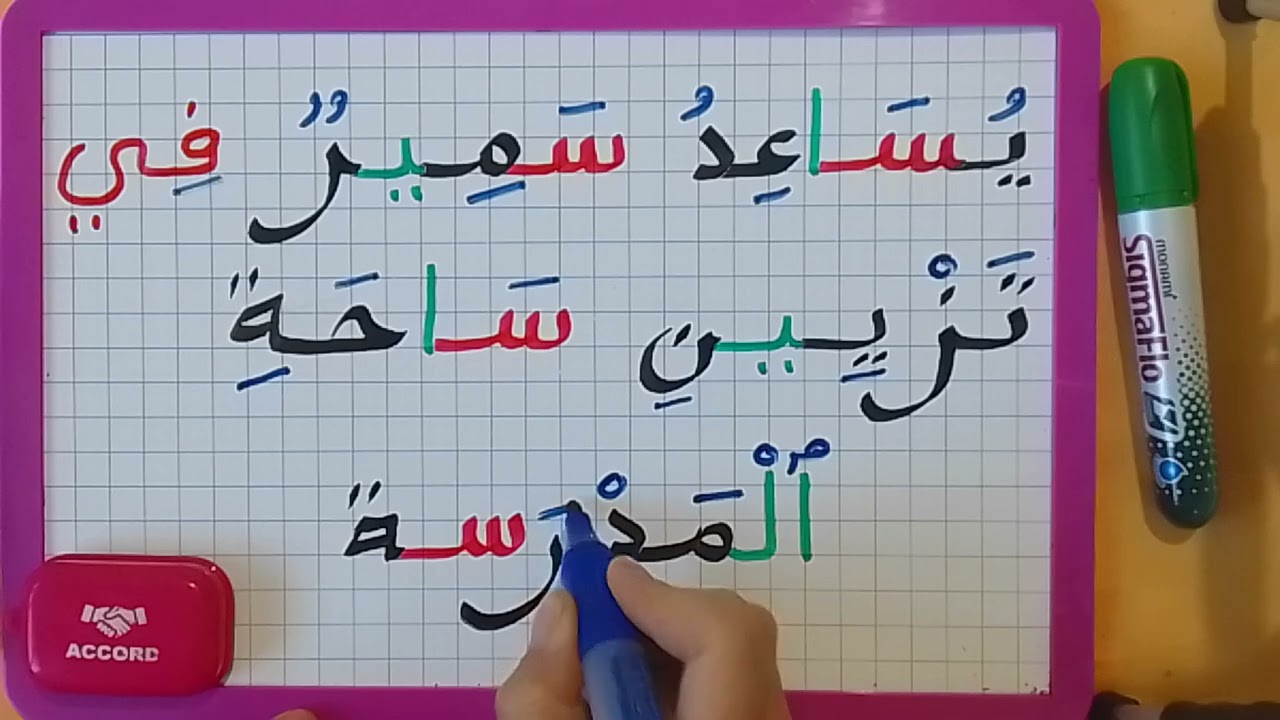 يُسَاعِدُ سَمِيرٌ فِي
تَزْيِينِ سَاحَةِ
ٱلْمَدْرَسة
ACCORD
monami
SigmaFlo